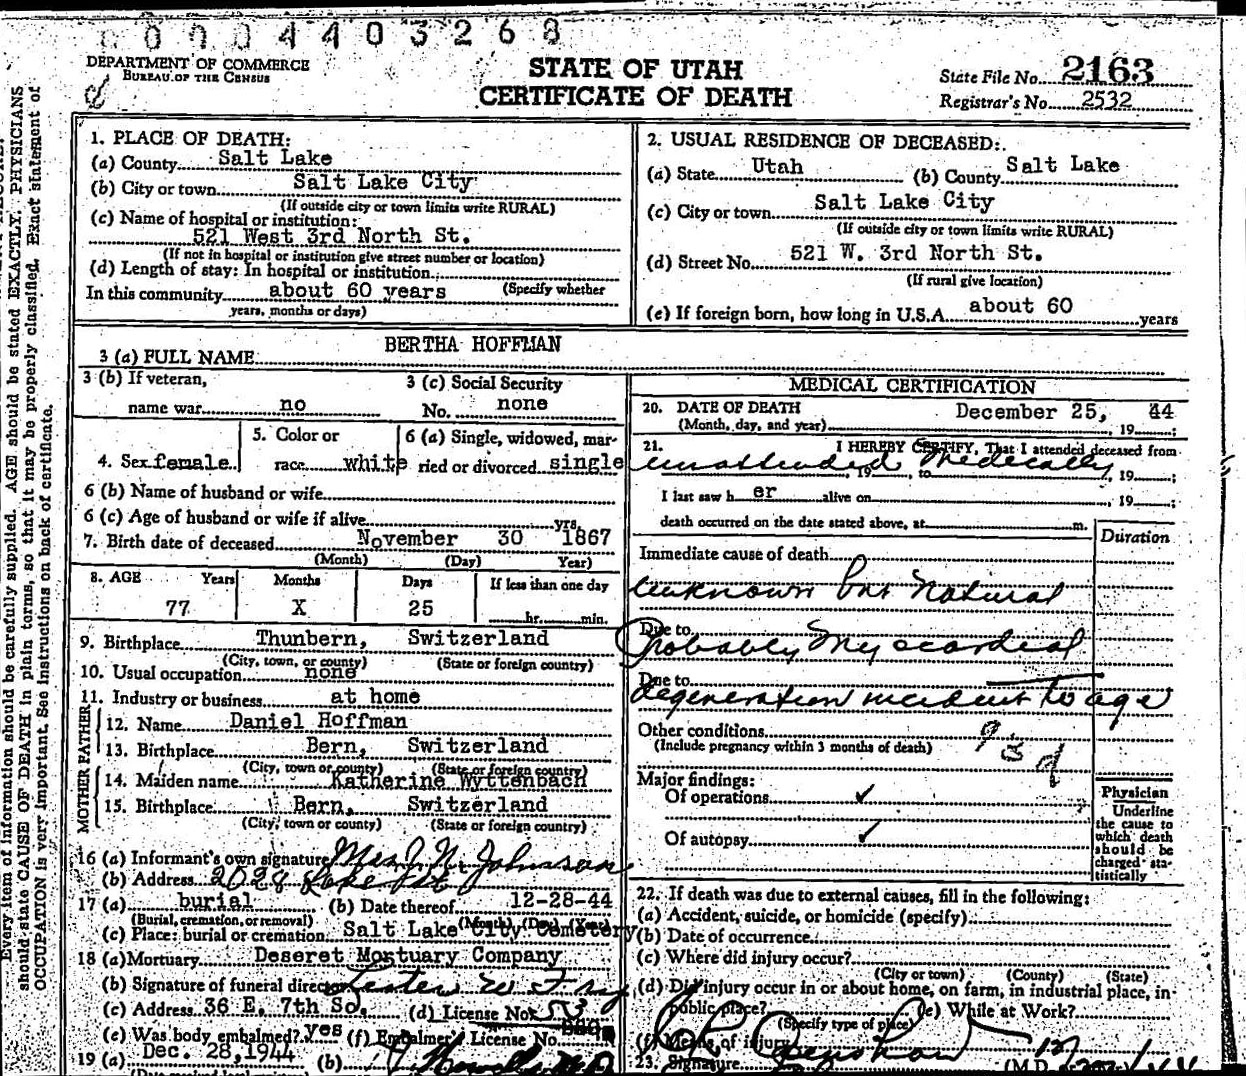 0004403268
DEPARTMENT OF COMMERCE
BUREAU OF THE CENSUS
STATE OF UTAH
CERTIFICATE OF DEATH
State File No. 2163
Registrar's No. 2532
Every item of information should be carefully supplied. AGE should be stated EXACTLY. PHYSICIANS
should state CAUSE OF DEATH in plain terms, so that it may be properly classified. Exact statement of
OCCUPATION is very important. See instructions on back of certificate.
1. PLACE OF DEATH:
(a) County Salt Lake
(b) City or town Salt Lake City
(If outside city or town limits write RURAL)
(c) Name of hospital or institution:
521 West 3rd North St.
(If not in hospital or institution give street number or location)
(d) Length of stay: In hospital or institution
In this community about 60 years (Specify whether
years, months or days)
2. USUAL RESIDENCE OF DECEASED:
(a) State Utah (b) County Salt Lake
(c) City or town Salt Lake City
(If outside city or town limits write RURAL)
(d) Street No. 521 W. 3rd North St.
(If rural give location)
(e) If foreign born, how long in U.S.A. about 60 years
3 (a) FULL NAME BERTHA HOFFMAN
3 (b) If veteran,
name war no
3 (c) Social Security
No. none
4. Sex female
5. Color or
race white
6 (a) Single, widowed, mar-
ried or divorced single
6 (b) Name of husband or wife
6 (c) Age of husband or wife if alive yrs.
7. Birth date of deceased November 30 1867
(Month) (Day) Year)
8. AGE Years Months Days If less than one day
77 X 25 hr. min.
9. Birthplace Thunbern, Switzerland
(City, town, or county) (State or foreign country)
10. Usual occupation none
11. Industry or business at home
FATHER
12. Name Daniel Hoffman
13. Birthplace Bern, Switzerland
(City, town or county) (State or foreign country)
MOTHER
14. Maiden name Katherine Wyttenbach
15. Birthplace Bern, Switzerland
(City, town or county) (State or foreign country)
16 (a) Informant's own signature Mrs J. N. Johnson
(b) Address 2028 Lake St
17 (a) burial (b) Date thereof 12-28-44
(Burial, cremation, or removal) (Month) (Day) (Year)
(c) Place: burial or cremation Salt Lake City Cemetery
18 (a) Mortuary Deseret Mortuary Company
(b) Signature of funeral director Lester W Fry
(c) Address 36 E. 7th So. (d) License No. 53
(e) Was body embalmed? yes (f) Embalmer's License No.
19 (a) Dec. 28, 1944 (b)
MEDICAL CERTIFICATION
20. DATE OF DEATH December 25, 44
(Month, day, and year) , 19 ;
21. I HEREBY CERTIFY, That I attended deceased from
unattended Medically , 19 , to , 19 ;
I last saw h er alive on , 19 ;
death occurred on the date stated above, at m.
Duration
Immediate cause of death
Unknown but Natural
Due to
Probably Myocardial
Due to
degeneration incident to age
Other conditions
(Include pregnancy within 3 months of death)
93d
Major findings:
Of operations ✓
Of autopsy ✓
Physician
Underline
the cause to
which death
should be
charged sta-
tistically
22. If death was due to external causes, fill in the following:
(a) Accident, suicide, or homicide (specify)
(b) Date of occurrence
(c) Where did injury occur?
(City or town) (County) (State)
(d) Did injury occur in or about home, on farm, in industrial place, in
public place? (e) While at Work?
(Specify type of place)
(f) Means of injury
23. Signature (M.D.